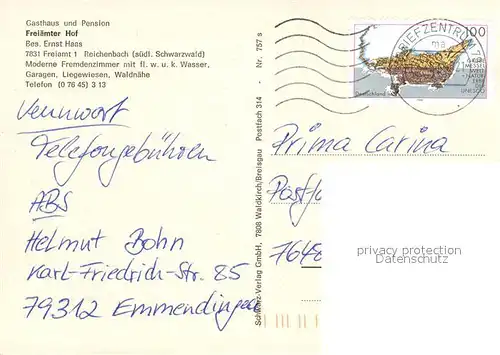 Gasthaus und Pension
Freiämter Hof
Bes. Ernst Haas
7831 Freiamt 1 Reichenbach (südl. Schwarzwald)
Moderne Fremdenzimmer mit fl. w. u. k. Wasser,
Garagen, Liegewiesen, Waldnähe
Telefon (0 76 45) 3 13
Kennwort
Telefongebühren
ABS
Helmut Bohn
Karl-Friedrich-Str. 85
79312 Emmendingen
Schwarz-Verlag GmbH, 7808 Waldkirch/Breisgau Postfach 314 - Nr. 757 s
BRIEFZENTRUM
100
GRUBE
MESSEL
WELT
NATUR
ERBE
DER
UNESCO
Deutschland
Prima Carina
Postf
7648
privacy protection
Datenschutz